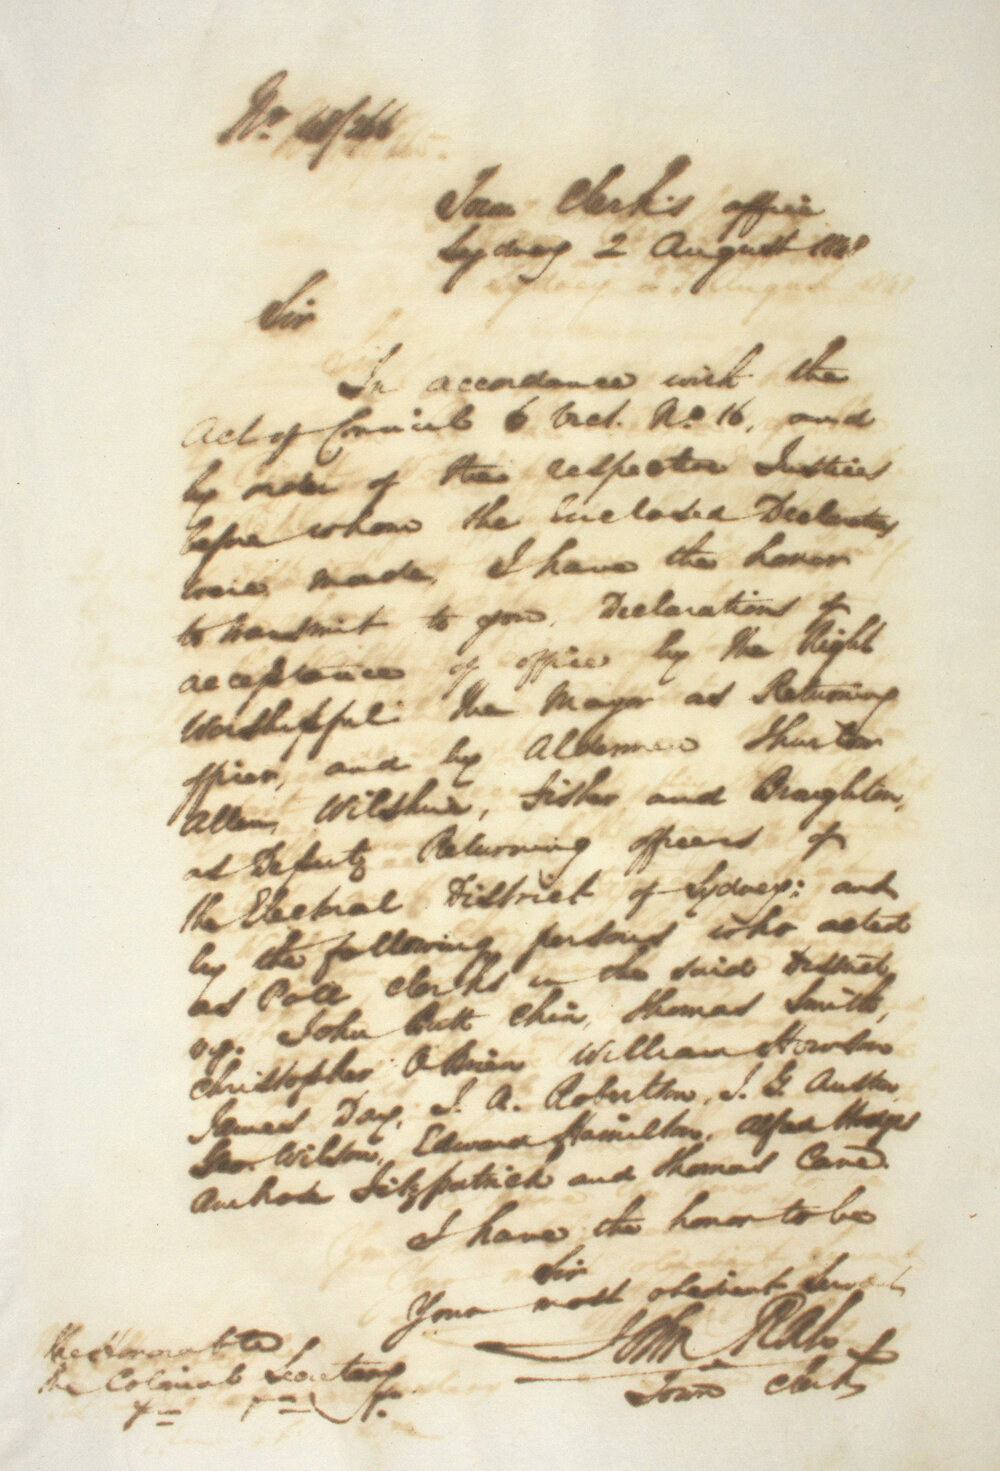 No. 48/266
Town Clerk's office
Sydney 2 August 1848
Sir
In accordance with the
Act of Council 6 Vict. No. 16, and
by order of the respective Justices
before whom the enclosed Declarations
were made, I have the honor
to transmit to you, Declarations of
acceptance of office by the Right
Worshipful the Mayor as Returning
officer, and by Aldermen Thurlow
Allen, Wilshire, Fisher and Broughton,
as Deputy Returning officers of
the Electoral District of Sydney: and
by the following persons who acted
as Poll clerks in the said District
vig. John Butt Chin, Thomas Smith,
Christopher O'Brien William Howson
James Day, J. A. Robertson, J. G. Austin,
Geo. Wilson, Edward Hamilton, Alfred Hodges
Fitzpatrick and Thomas Cane.
I have the honor to be
Sir
Your most obedient Servant
John Rae
Town Clerk
The Honorable
the Colonial Secretary